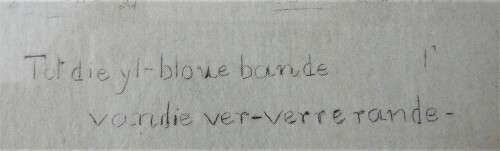 Tot die yl-bloue bande
van die ver-verre rande-